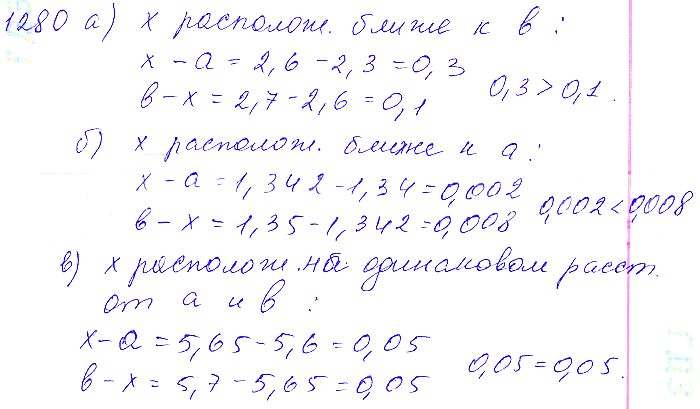 1280 а) х располож. ближе к в :
х - а = 2,6 - 2,3 = 0,3
в - х = 2,7 - 2,6 = 0,1 0,3 > 0,1.
б) х располож. ближе к а :
х - а = 1,342 - 1,34 = 0,002
в - х = 1,35 - 1,342 = 0,008 0,002 < 0,008
в) х располож. на одинаковом расст.
от а и в :
х - а = 5,65 - 5,6 = 0,05
в - х = 5,7 - 5,65 = 0,05 0,05 = 0,05.